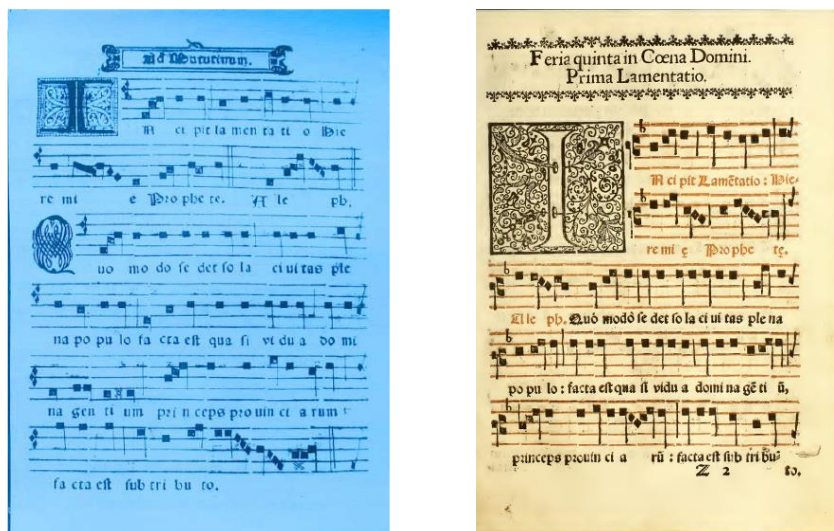 Ad Matutinum.
IN ci pit la men ta ti o Hie
re mi e Pro phe te. A le ph.
QUo mo do se det so la ci ui tas ple
na po pu lo fa cta est qua si vi du a do mi
na gen ti um pri nceps pro uin ci a rum
fa cta est sub tri bu to.
Feria quinta in Cœna Domini.
Prima Lamentatio.
IN ci pit Lamẽtatio : Hie-
re mi ę Prophe tę.
A le ph. Quò modò se det so la ci ui tas ple na
po pu lo : facta est qua si vidu a domi na gẽ ti ũ,
princeps prouin ci a rũ : facta est sub tri bu-
Z 2 to.